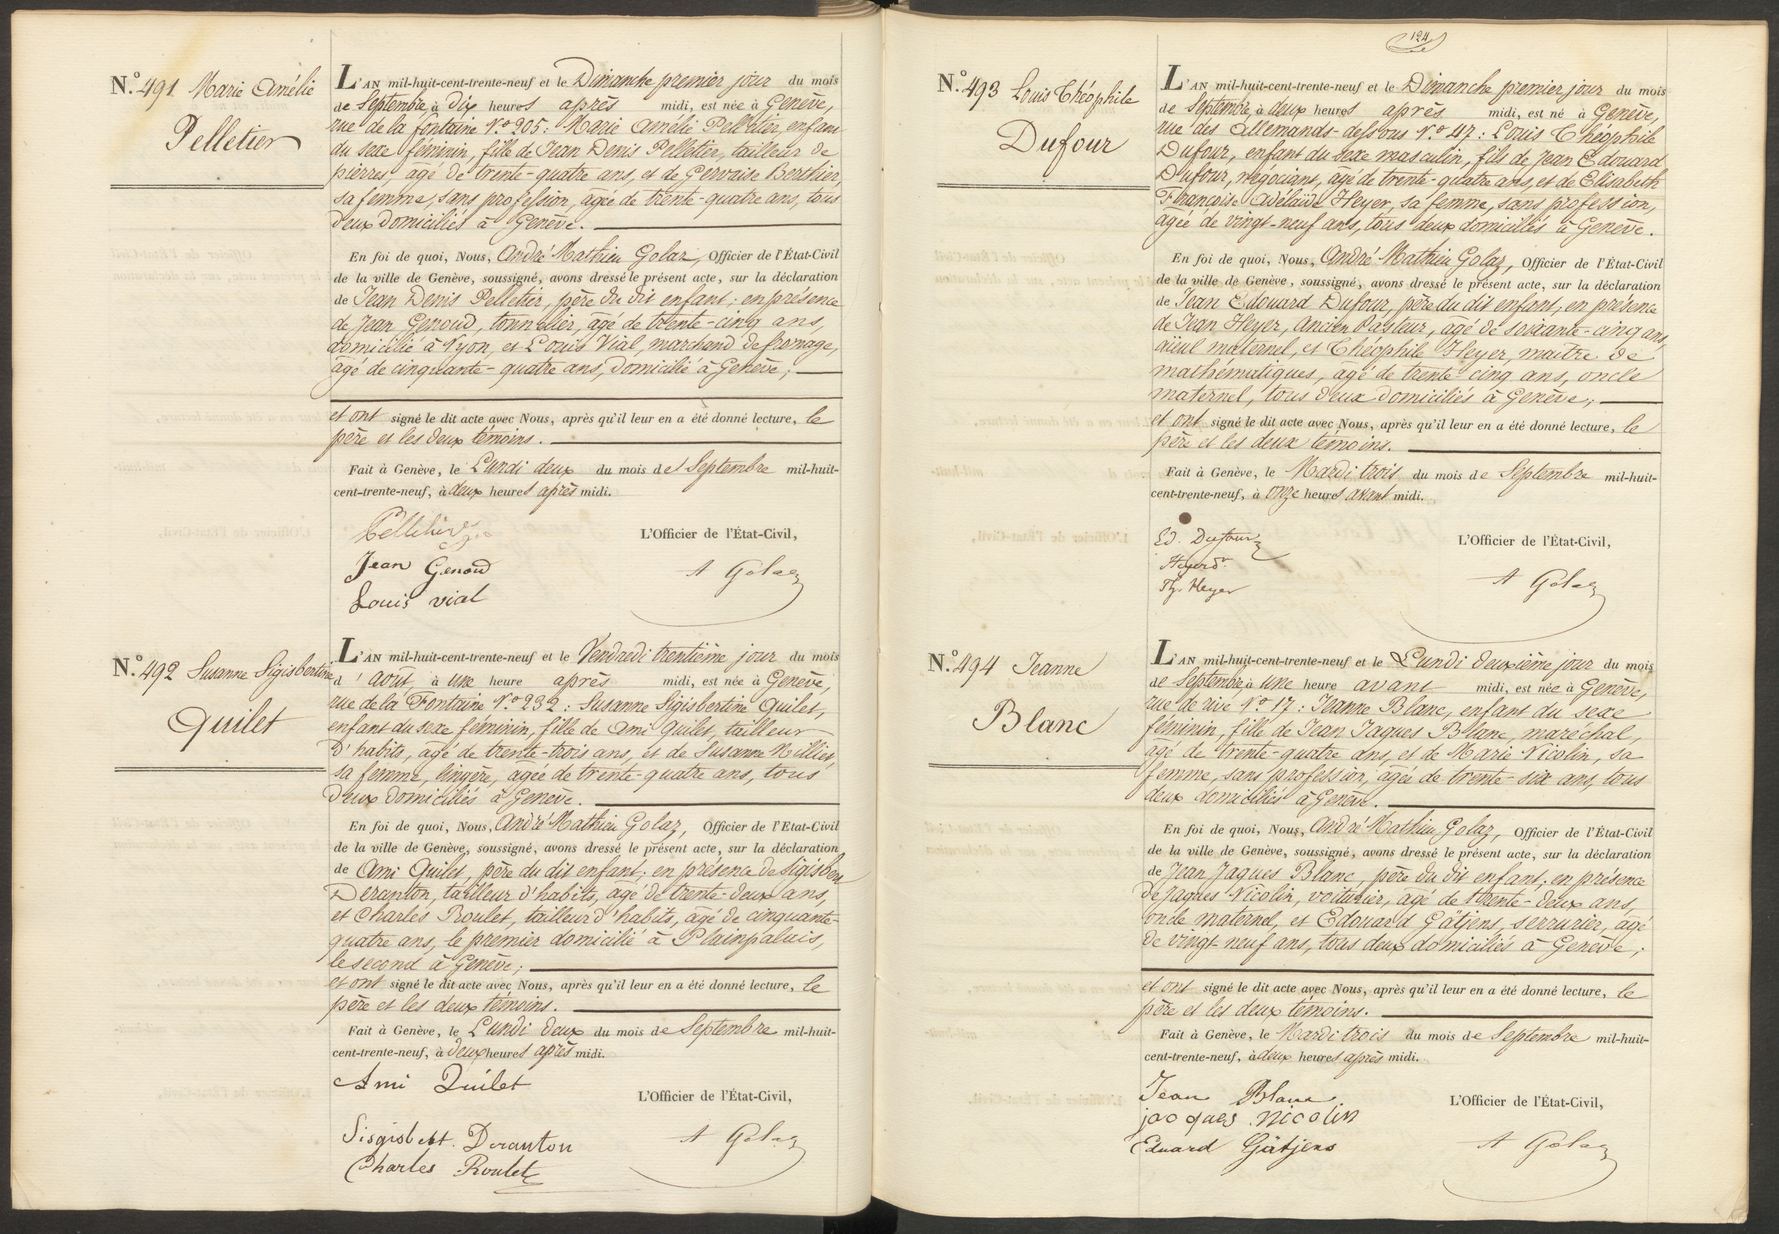 N.º 491 Marie Amélie
Pelletier
L'AN mil-huit-cent-trente-neuf et le Dimanche premier jour du mois
de Septembre à dix heures après midi, est née à Genève,
rue de la fontaine N.º 205: Marie Amélie Pelletier, enfant
du sexe féminin, fille de Jean Denis Pelletier, tailleur de
pierres, agé de trente-quatre ans, et de Gervaise Berthier,
sa femme, sans profession, agée de trente-quatre ans, tous
deux domiciliés à Genève.
En foi de quoi, Nous, André Mathieu Golaz, Officier de l'État-Civil
de la ville de Genève, soussigné, avons dressé le présent acte, sur la déclaration
de Jean Denis Pelletier, père du dit enfant; en présence
de Jean Genoud, tonnelier, agé de trente-cinq ans,
domicilié à Nyon, et Louis Vial, marchand de fromage,
âgé de cinquante-quatre ans, domicilié à Genève;
et ont signé le dit acte avec Nous, après qu'il leur en a été donné lecture, le
père et les deux témoins.
Fait à Genève, le Lundi deux du mois de Septembre mil-huit-
cent-trente-neuf, à deux heures après midi.
Pelletier
L'Officier de l'État-Civil,
Jean Genoud
A Golaz
Louis vial
N.º 492 Susanne Sigisbertine
Quilet
L'AN mil-huit-cent-trente-neuf et le Vendredi trentième jour du mois
d'août à une heure après midi, est née à Genève,
rue de la Fontaine N.º 232: Susanne Sigisbertine Quilet,
enfant du sexe féminin, fille de Ami Quilet, tailleur
d'habits, agé de trente-trois ans, et de Susanne Millier,
sa femme, lingère, agée de trente-quatre ans, tous
deux domiciliés à Genève.
En foi de quoi, Nous, André Mathieu Golaz, Officier de l'Etat-Civil
de la ville de Genève, soussigné, avons dressé le présent acte, sur la déclaration
de Ami Quilet, père du dit enfant; en présence de Sigisbert
Deranton, tailleur d'habits, agé de trente-deux ans,
et Charles Roulet, tailleur d'habits, agé de cinquante
quatre ans, le premier domicilié à Plainpalais,
le second à Genève;
et ont signé le dit acte avec Nous, après qu'il leur en a été donné lecture, le
père et les deux témoins.
Fait à Genève, le Lundi deux du mois de Septembre mil-huit-
cent-trente-neuf, à deux heures après midi.
Ami Quilet
L'Officier de l'État-Civil,
Sisgisbert. Deranton
A Golaz
Charles Roulet
124
N.º 493 Louis Théophile
Dufour
L'AN mil-huit-cent-trente-neuf et le Dimanche premier jour du mois
de Septembre, à deux heures après midi, est né à Genève,
rue des Allemands-dessous N.º 47: Louis Théophile
Dufour, enfant du sexe masculin, fils de Jean Edouard
Dufour, négociant, agé de trente-quatre ans, et de Elisabeth
Françoise Adélaïde Heyer, sa femme, sans profession,
agée de vingt-neuf ans, tous deux domiciliés à Genève.
En foi de quoi, Nous, André Mathieu Golaz, Officier de l'État-Civil
de la ville de Genève, soussigné, avons dressé le présent acte, sur la déclaration
de Jean Edouard Dufour, père du dit enfant, en présence
de Jean Heyer, Ancien Pasteur, agé de soixante-cinq ans,
aïeul maternel, et Théophile Heyer, maître de
mathématiques, agé de trente-cinq ans, oncle
maternel, tous deux domiciliés à Genève;
et ont signé le dit acte avec Nous, après qu'il leur en a été donné lecture, le
père et les deux témoins.
Fait à Genève, le Mardi trois du mois de Septembre mil-huit-
cent-trente-neuf, à onze heures avant midi.
Ed. Dufour
L'Officier de l'État-Civil,
A Golaz
Th. Heyer
N.º 494 Jeanne
Blanc
L'AN mil-huit-cent-trente-neuf et le Lundi deuxième jour du mois
de Septembre, à une heure avant midi, est née à Genève,
rue de rive N.º 17: Jeanne Blanc, enfant du sexe
féminin, fille de Jean Jaques Blanc, maréchal,
agé de trente-quatre ans, et de Marie Nicolin, sa
femme, sans profession, agée de trente-six ans, tous
deux domiciliés à Genève.
En foi de quoi, Nous, André Mathieu Golaz, Officier de l'État-Civil
de la ville de Genève, soussigné, avons dressé le présent acte, sur la déclaration
de Jean Jaques Blanc, père du dit enfant, en présence
de Jaques Nicolin, voiturier, agé de trente-deux ans,
oncle maternel, et Edouard Gätjens, serrurier, agé
de vingt neuf ans, tous deux domiciliés à Genève;
et ont signé le dit acte avec Nous, après qu'il leur en a été donné lecture, le
père et les deux témoins.
Fait à Genève, le Mardi trois du mois de Septembre mil-huit-
cent-trente-neuf, à deux heures après midi.
Jean Blanc
L'Officier de l'État-Civil,
jacques nicolin
A Golaz
Eduard Gätjens